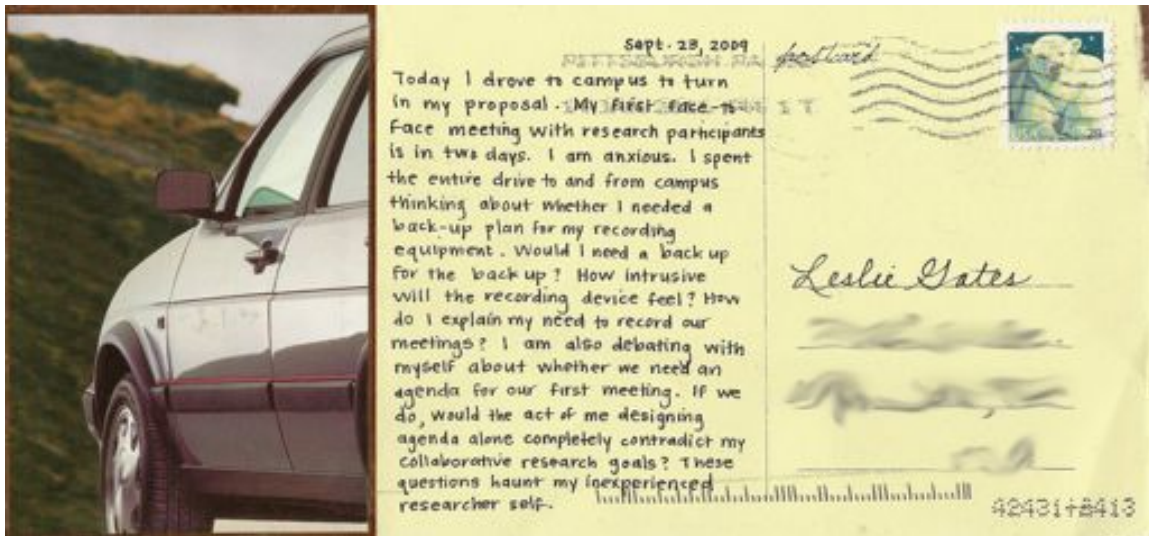 Sept. 23, 2009
Today I drove to campus to turn
in my proposal. My first face-to
Face meeting with research participants
is in two days. I am anxious. I spent
the entire drive to and from campus
thinking about whether I needed a
back-up plan for my recording
equipment. Would I need a back up
for the back up? How intrusive
will the recording device feel? How
do I explain my need to record our
meetings? I am also debating with
myself about whether we need an
agenda for our first meeting. If we
do, would the act of me designing
agenda alone completely contradict my
collaborative research goals? These
questions haunt my inexperienced
researcher self.
postcard
PITTSBURGH PA
USA 28
Leslie Gates
42431+8413